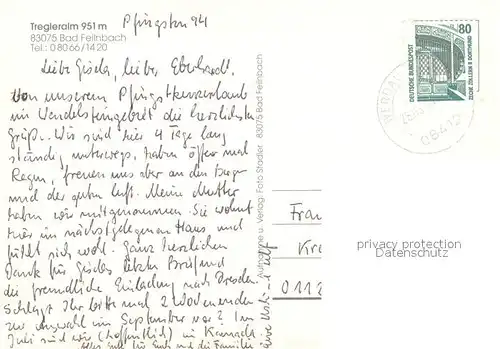 Tregleralm 951 m
83075 Bad Feilnbach
Tel.: 0 80 66/14 20
Pfingsten 94
Liebe Gisela, lieber Eberhardt.
von unserem Pfingstkurzurlaub
im Wendelsteingebiet die herzlichsten
Grüße. Wir sind hier 4 Tage lang
ständig unterwegs, haben öfter mal
Regen, freuen uns aber an den Bergen
und der guten Luft. Meine Mutter
haben wir mitgenommen. Sie wohnt
hier im nächstgelegenen Haus und
fühlt sich wohl. Ganz herzlichen
Dank für Giselas letzten Brief und
die freundliche Einladung nach Dresden.
Schlagt Ihr bitte mal 2 Wochenenden
zur Auswahl im September vor? Im
Juli sind wir (hoffentlich) in
Alles Gute für Euch und die Familie
Autophoto u. Verlag: Foto Stadler 83075 Bad Feilnbach
80
DEUTSCHE BUNDESPOST
ZECHE ZOLLERN II DORTMUND
WERDAU
08412
Fran
Kre
0112
privacy protection
Datenschutz